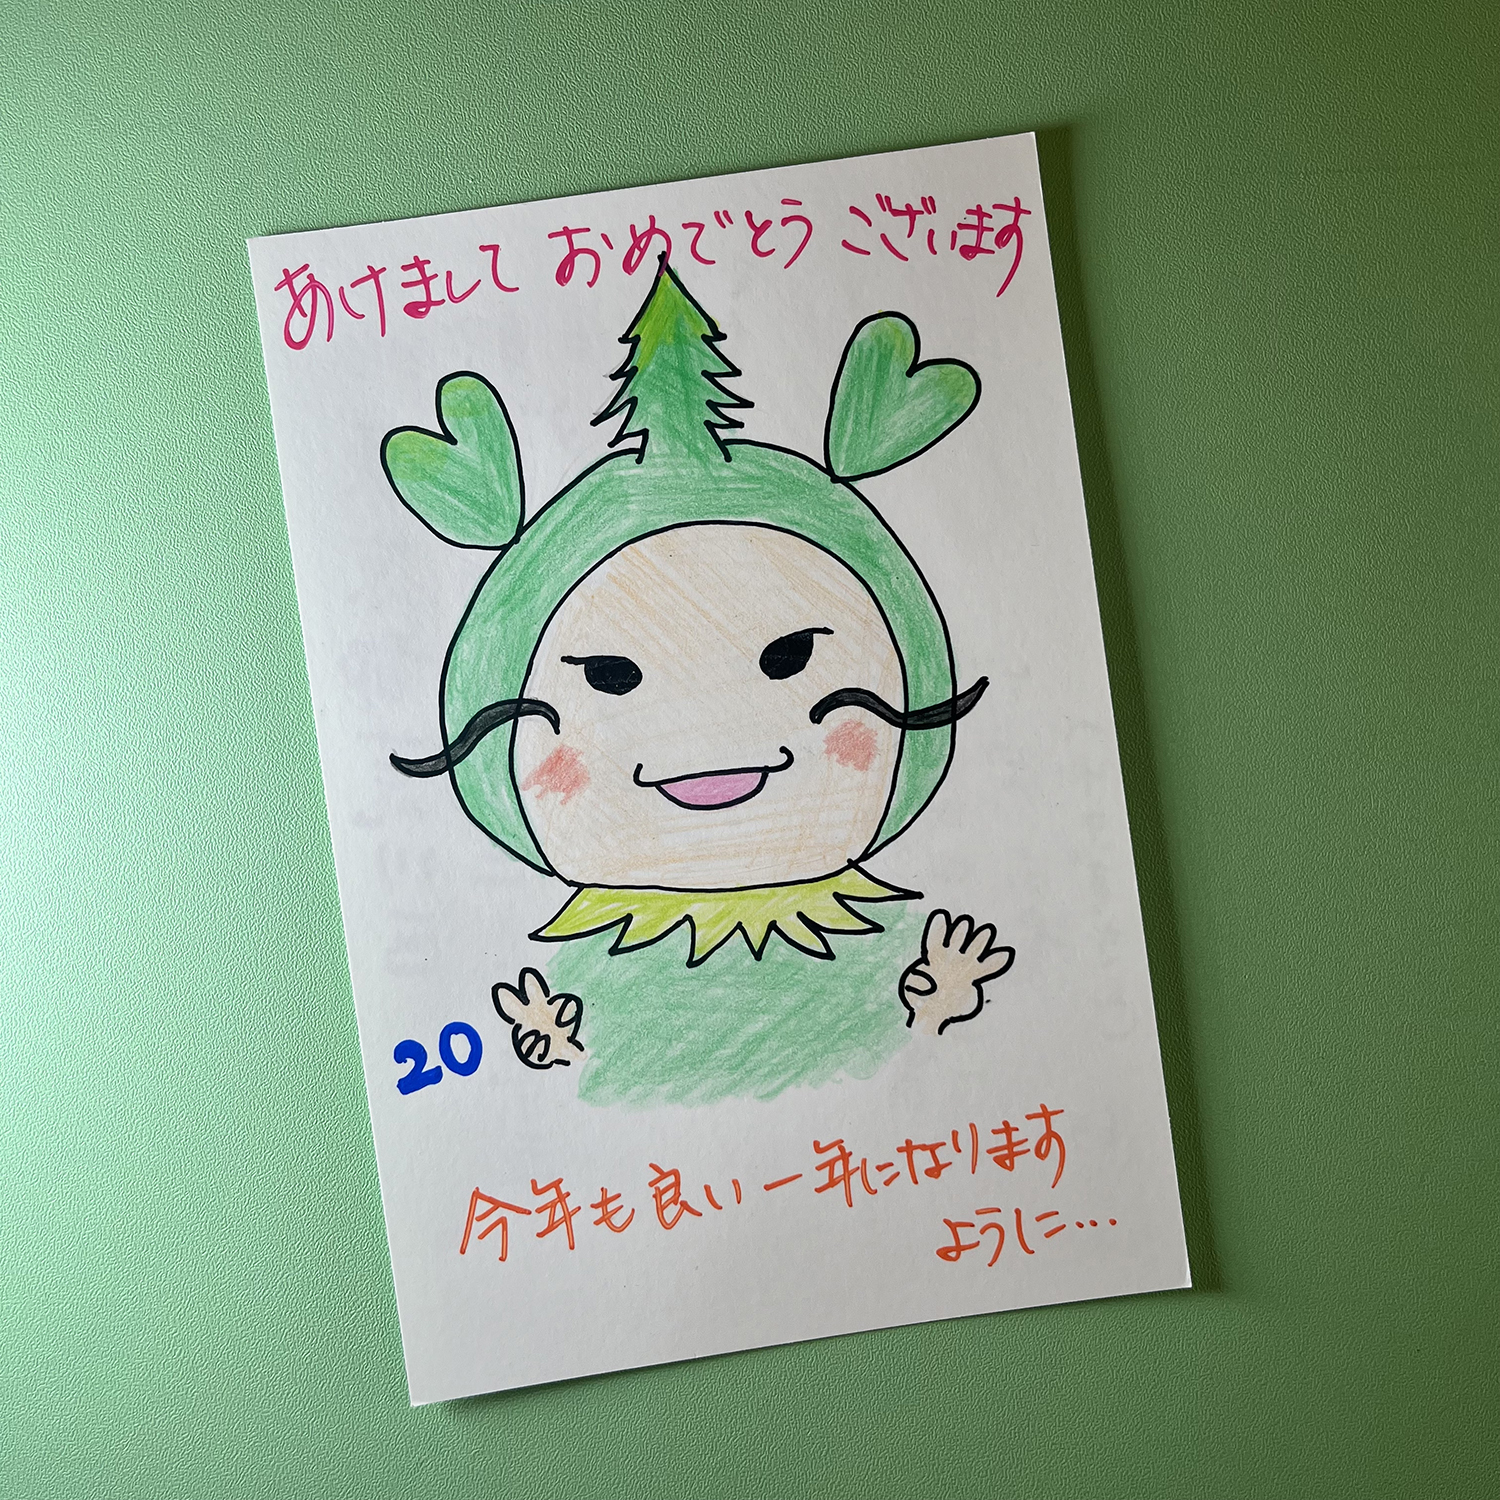 あけまして おめでとう ございます
20
今年も良い一年になります
ように…